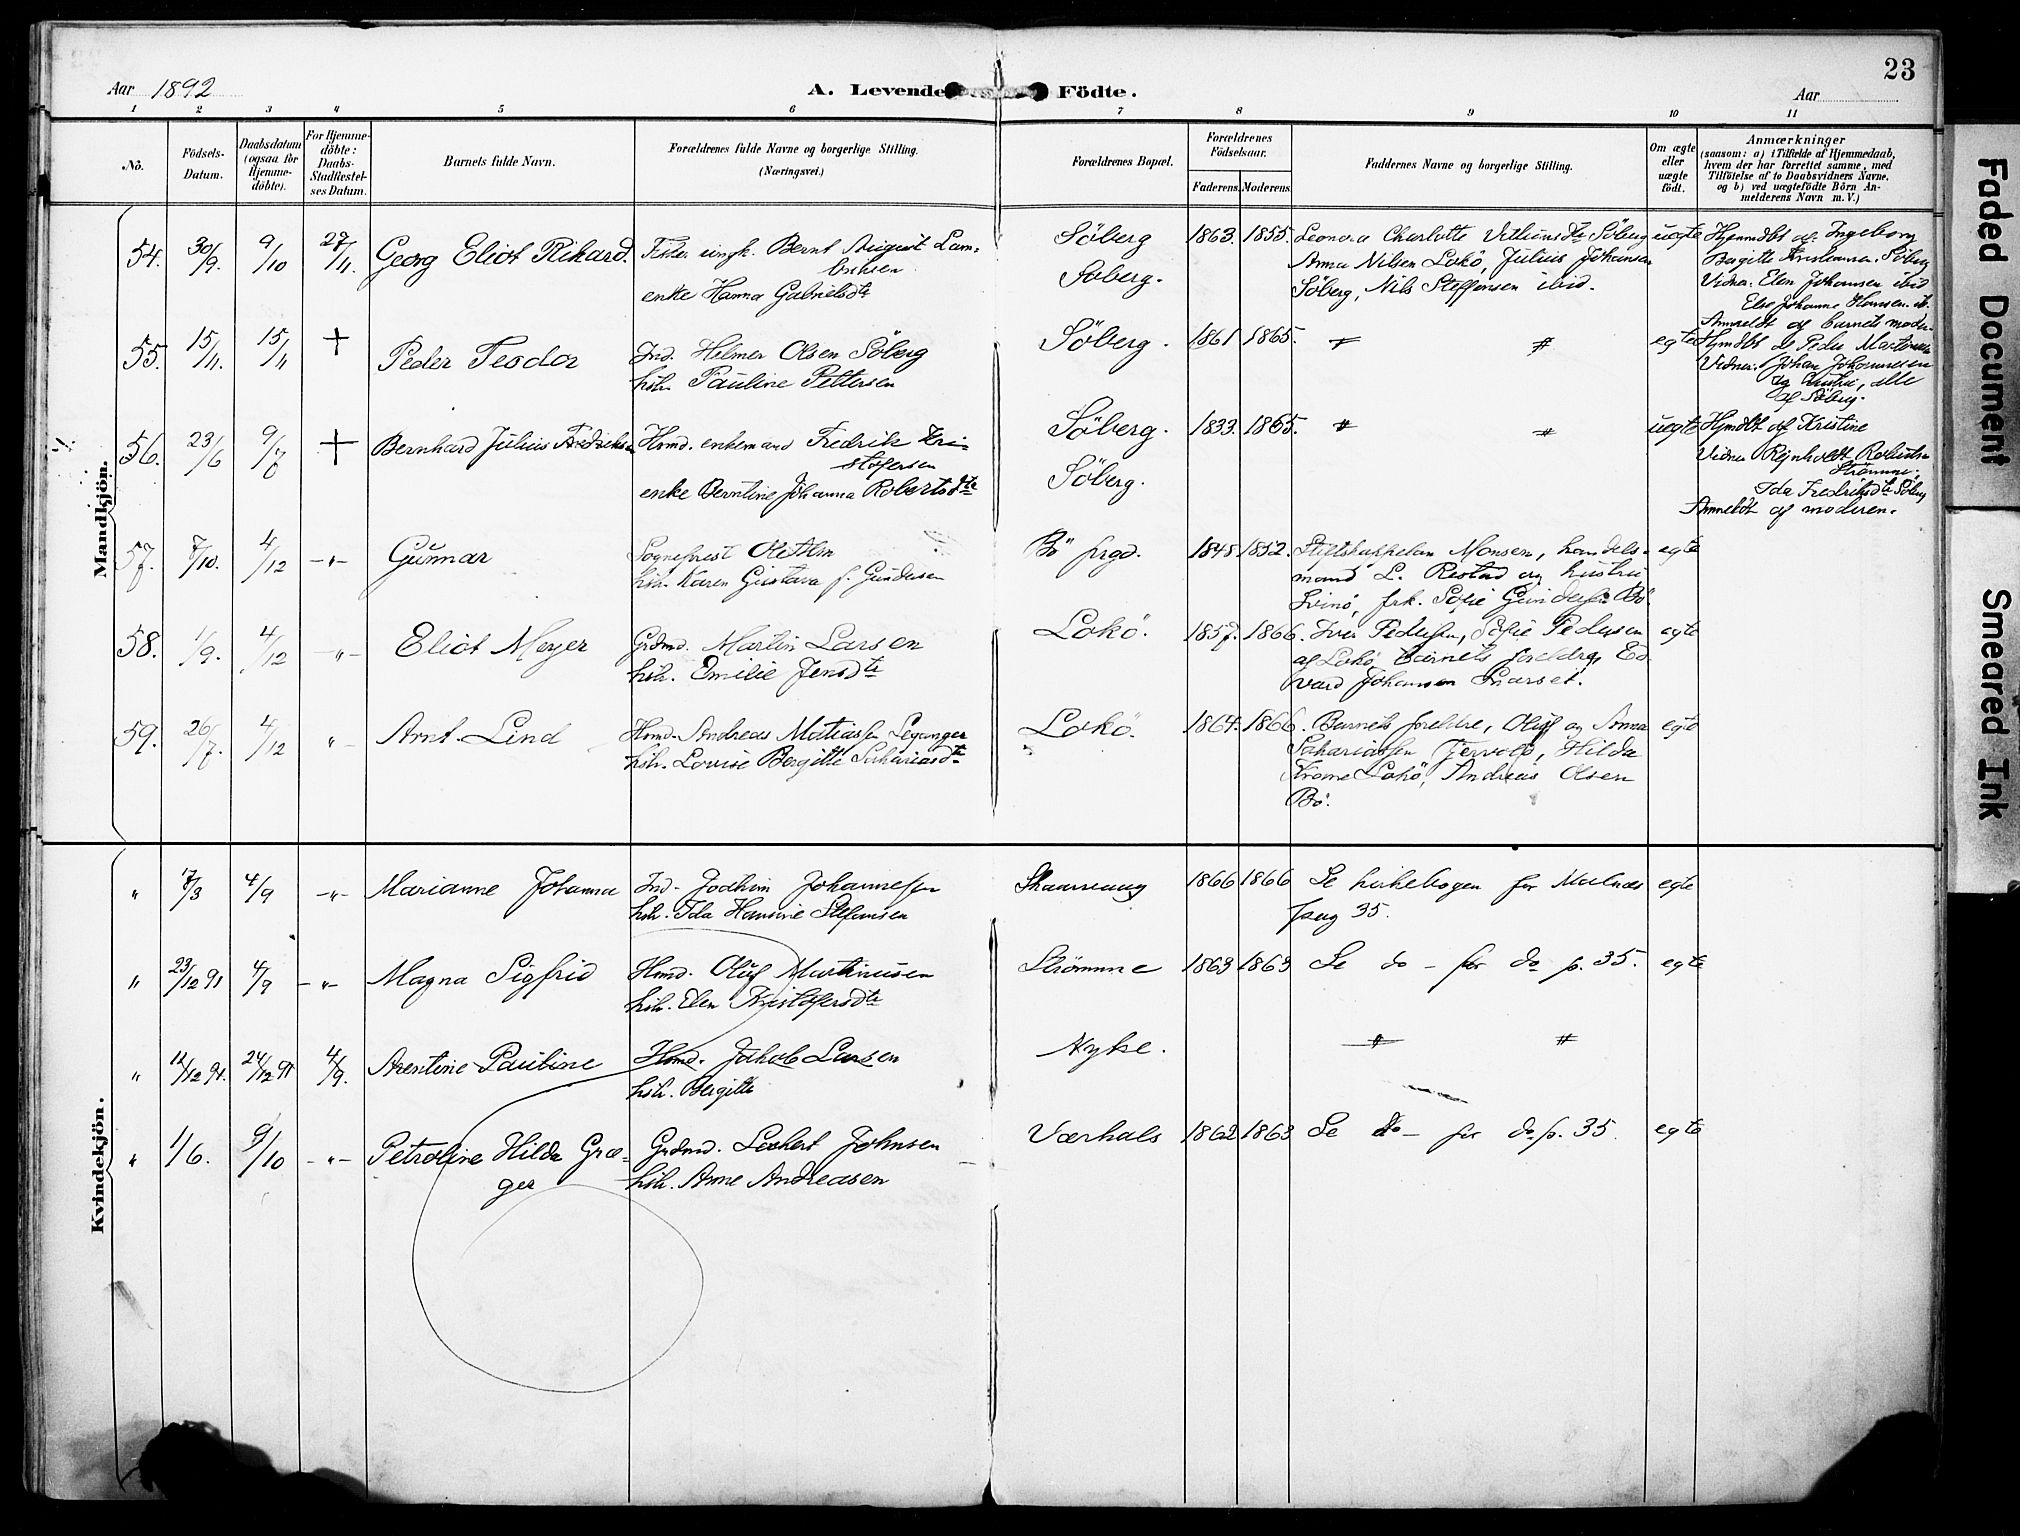 23
Aar 1892
A. Levende Födte.
Aar
1 2 3 4 5 6 7 8 9 10 11
No.
Födsels-Datum.
Daabsdatum (ogsaa for Hjemme-döbte).
For Hjemme-döbte: Daabs-Stadfæstel-ses Datum.
Barnets fulde Navn.
Forældrenes fulde Navne og borgerlige Stilling. (Næringsvei.)
Forældrenes Bopæl.
Forældrenes Födselsaar.
Faderens. Moderens.
Faddernes Navne og borgerlige Stilling.
Om ægte eller uægte födt.
Anmærkninger
(saasom: a) i Tilfælde af Hjemmedaab,
hvem der har forrettet samme, med
Tilföielse af to Daabsvidners Navne,
og b) ved uægtefödte Börn An-
melderens Navn m. V.)
Mandkjön.
54. 30/9. 9/10 27/11. Georg Eliot Rikard.
Fisker ungk. Bernt August Lam-
brihsen
enke Hanna Gabrielsdtr
Söberg
Söberg.
1863. 1855.
Leonora Charlotte Söberg
Anna Nilsen Lokö, Julius Johansen
Söberg, Nils Steffensen ibid.
uegte
Hjemmdbt af Ingeborg
Bergitte Kristiansen Söberg
Vidner: Elen Johansen ibid
Else Johanne Hansen ib.
Anmeldt af barnets moder.
55. 15/11. 15/11 + Peder Teodor
Ind. Helmer Olsen Söberg
hstr. Pauline Pettersen
Söberg. 1861 1865. egte
Hjmdbt af Peder
Vidner: Johan Johannesen
og hustru, alle
af Söberg.
56. 23/6 9/7 + Bernhard Julius Fredriksen
Hmd. enkemand Fredrik Kri-
stofersen
enke Berntine Johanna Robertsdtr
Söberg.
Söberg.
1833. 1865. uegte
Hjmdbt af Kristine
Vidner Reinholdt
Strömme.
Ida Fredriksdtr Söberg
Anmeldt af moderen.
57. 7/10. 4/12 -"- Gunnar
Sogneprest
hstr. Karen Gustava f. Gundersen
Bö prgd. 1848 1852.
Stiftskappelan Monsen, handels-
mand L. Restad og hustru
Svinö, frk. Sofie Gundersen Bö.
egte
58. 1/9. 4/12 -"- Eliot Meyer
Grdmd. Martin Larsen
hstr. Emilie Jensdtr
Lokö. 1857. 1866.
Iver Pedersen, Sofie Pedersen
af Lokö, barnets foreldre, Ed-
vard Johansen
egte
59. 26/7. 4/12 " Arnt Lind
Hmd. Andreas Matiassen Leganger
hstr. Lovise Bergitte Sakariasdtr
Lokö. 1864. 1866.
Barnets foreldre, Oluf og Anna
Sakariassen Fjervold, Hilda
Lokö, Andreas Olsen
Bö.
egte
Kvindekjön.
" 17/3 4/9 -"- Marianne Johanna
Ind. Joakim Johannesen
hstr. Ida Hansine Stefansen
1866 1866
Se kirkebogen for Malnes
pag 35.
egte
" 23/12 91 4/9 -"- Magna Sigfrid
Hmd. Oluf Martinusen
hstr. Elen Kristofersdtr
Strömme 1863 1863
Se do - for do p. 35.
egte
" 12/12 91. 24/12 91 4/9. Arentine Pauline
Hmd. Jakob Larsen
hstr. Bergitte
Nyke.
" 1/6. 9/10 -"- Petroline Hilda Græ-
ger
Grdmd. Leehert Johnsen
hstr. Anne Andreasen
Værhals 1862 1863
Se do - for do p. 35.
egte
Faded Document
Smeared Ink